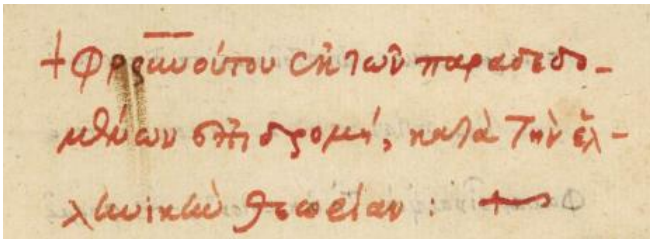 + ἐκ τῶν παραδεδο-
μένων ἐπιδρομή, κατὰ τὴν ἑλ-
ληνικὴν θεωρίαν : +